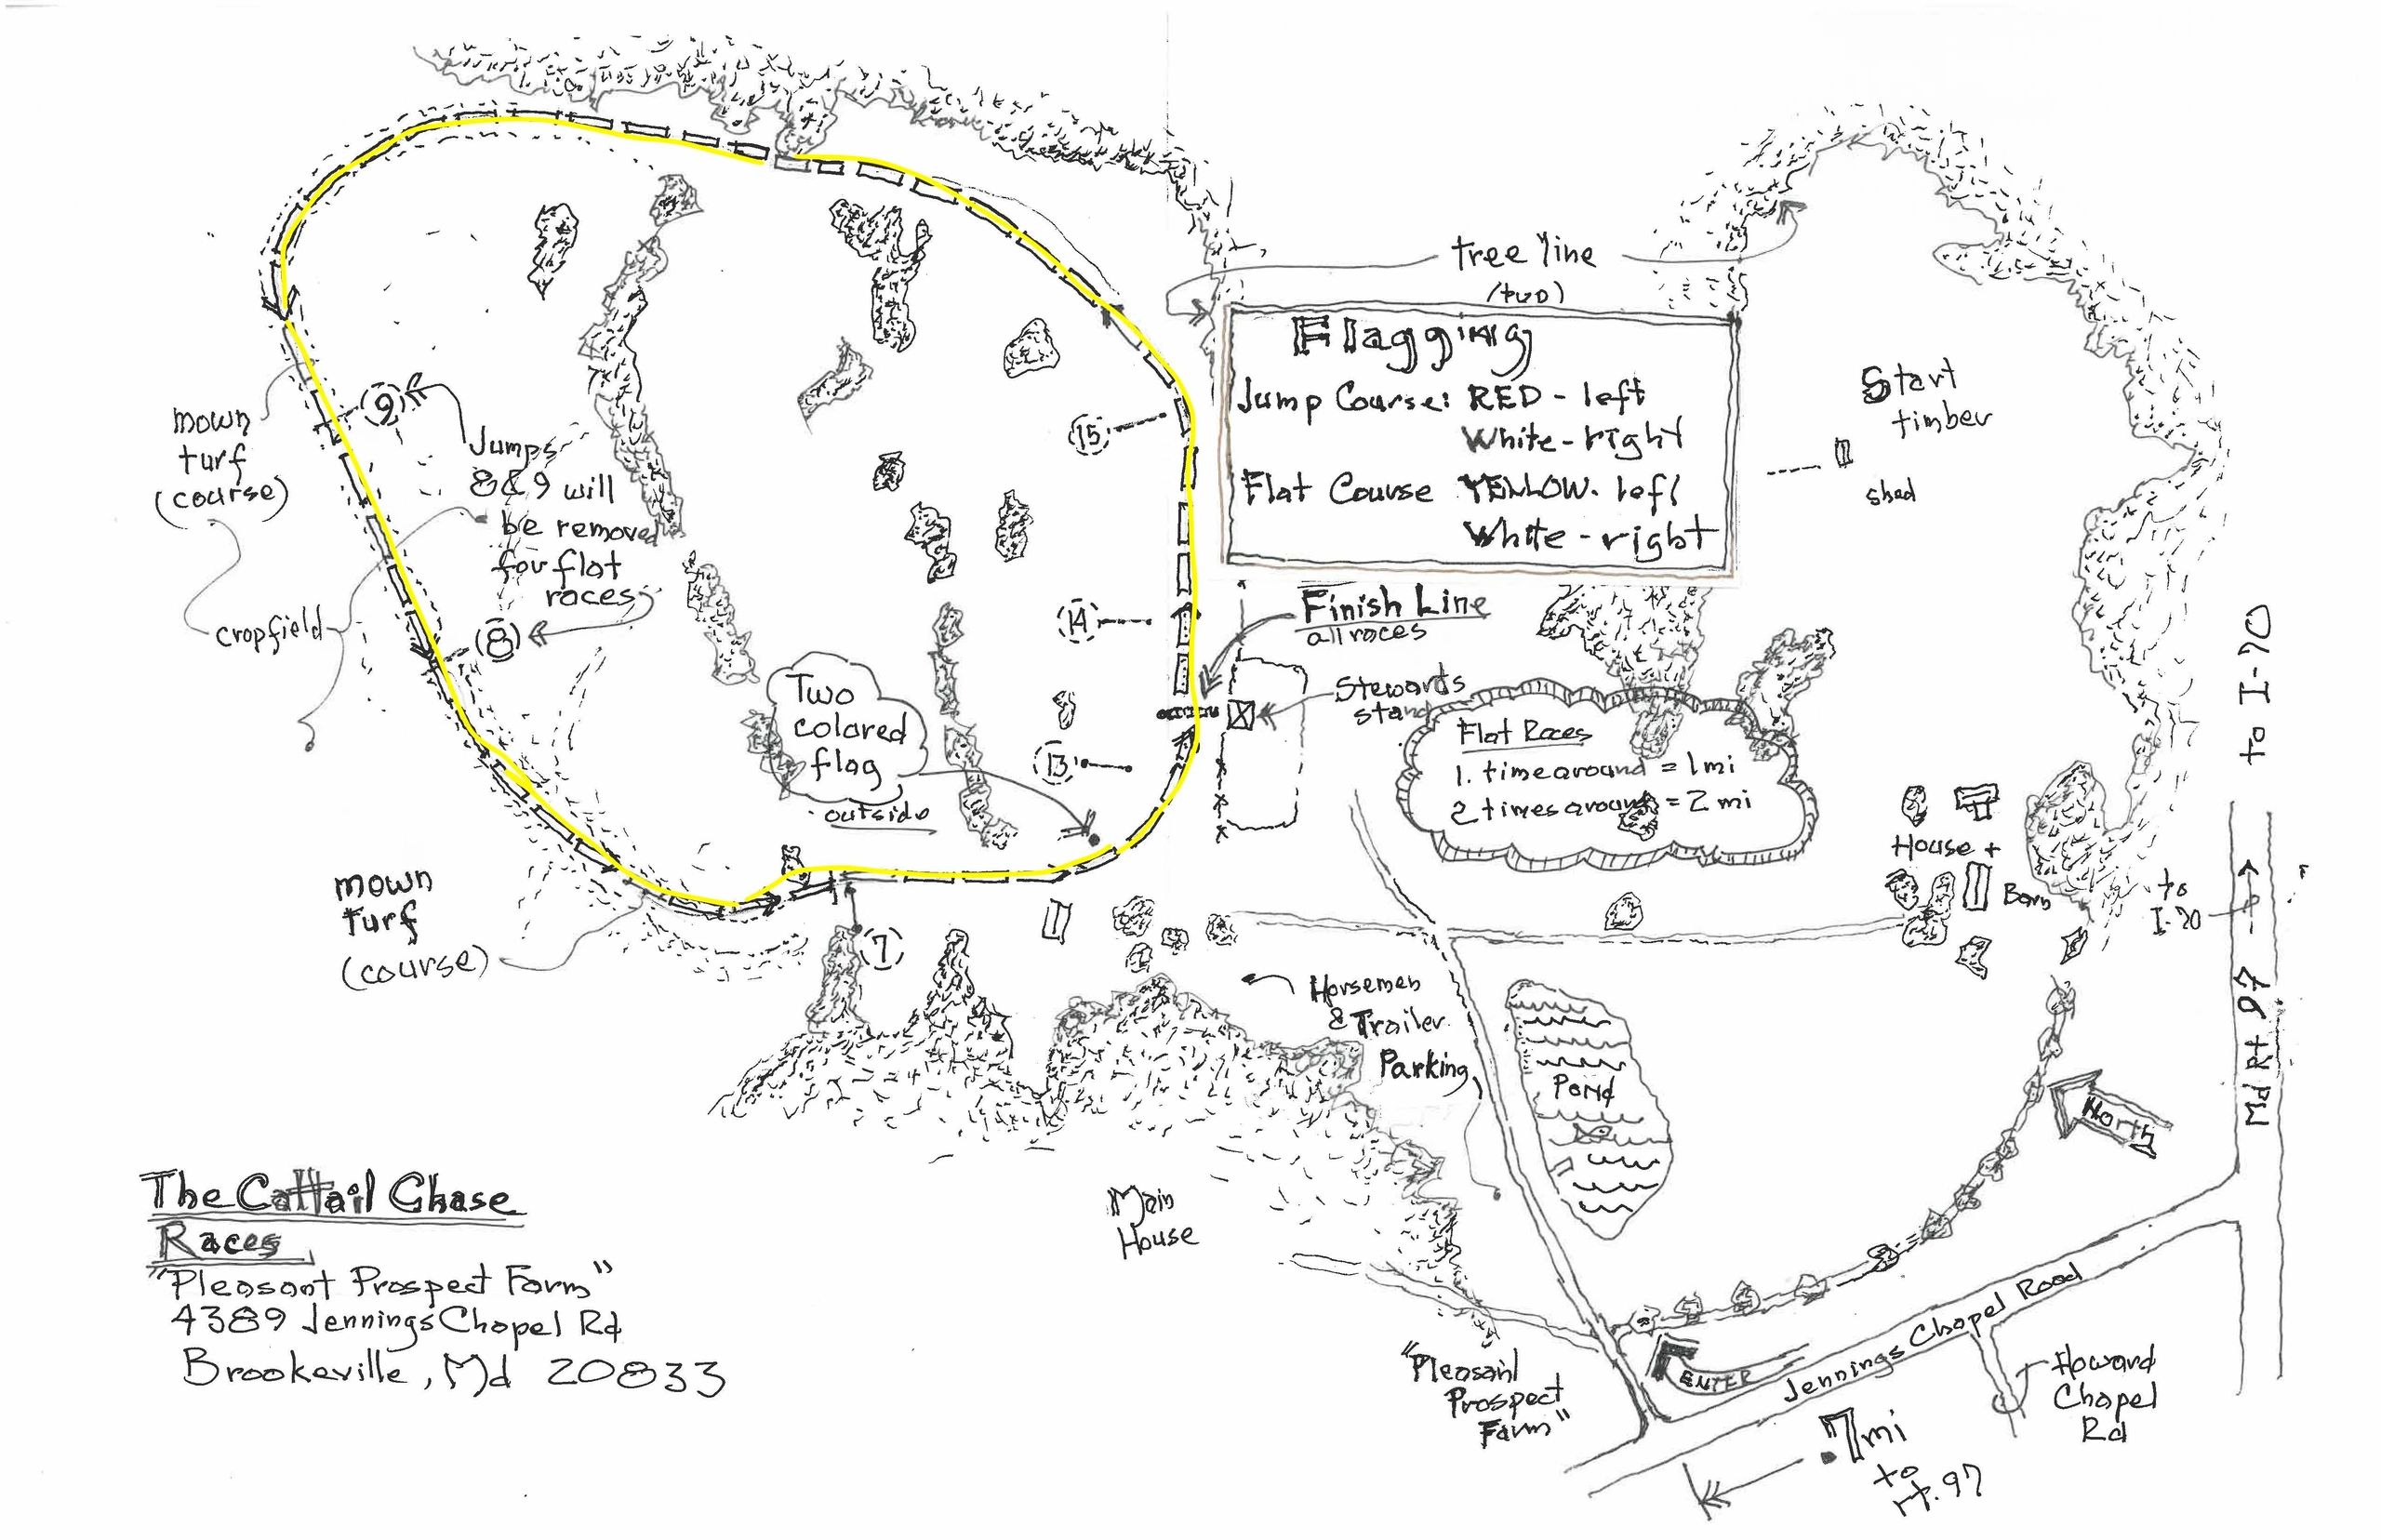 tree line
(two)
Flagging
Jump Course: RED - left
White - right
Flat Course YELLOW - left
White - right
Start
timber
shed
15
9
mown
turf
(course)
Jumps
8 & 9 will
be removed
for flat
races
cropfield
8
14
Finish Line
all races
Stewards
stand
Two
colored
flag
outside
13
Flat Races
1. time around = 1 mi
2 times around = 2 mi
to I-70
House +
Barn
to
I-70
mown
turf
(course)
7
Horsemen
& Trailer
Parking
Pond
Md Rt 97
North
Main
House
The Cattail Chase
Races
"Pleasant Prospect Farm"
4389 Jennings Chapel Rd
Brookeville, Md 20833
"Pleasant
Prospect
Farm"
ENTER
Jennings Chapel Road
Howard
Chapel
Rd
.7 mi
to
rt. 97